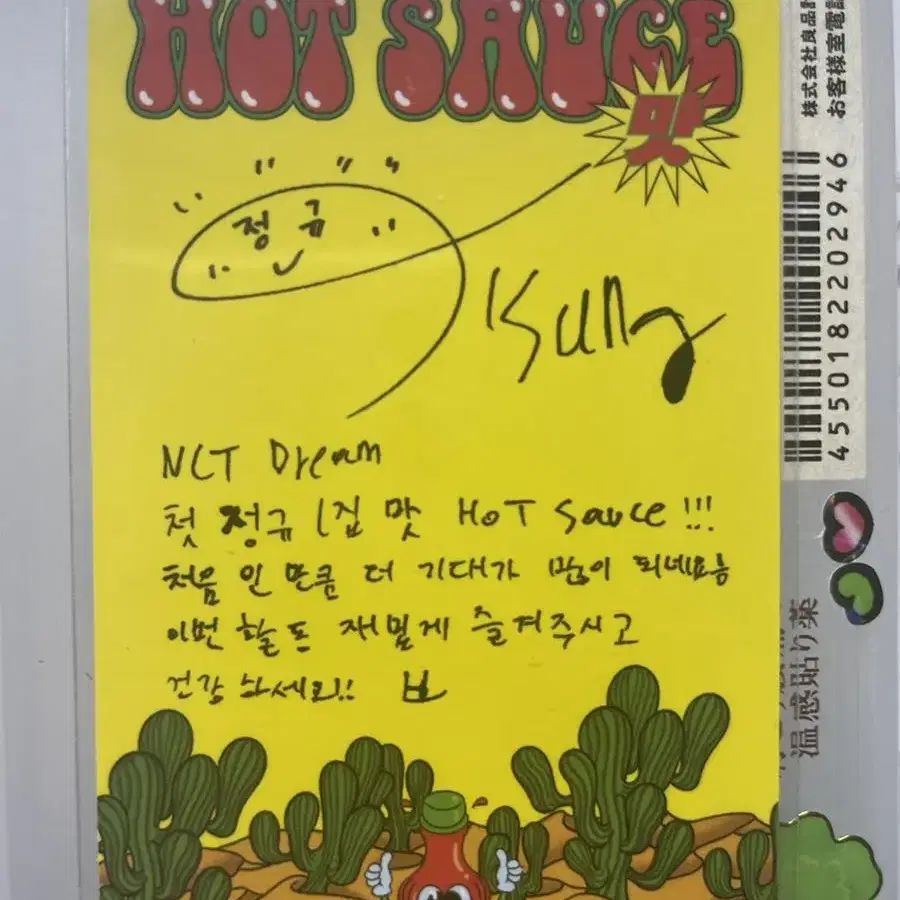 HOT SAUCE
맛
정규
NCT Dream
첫 정규 1집 맛 HOT Sauce!!!
처음 인 만큼 더 기대가 많이 되네요
이번 활동 재밌게 즐겨주시고
건강 하세요!!
株式会社良品
お客様室電話
4550182202946
温感貼り薬